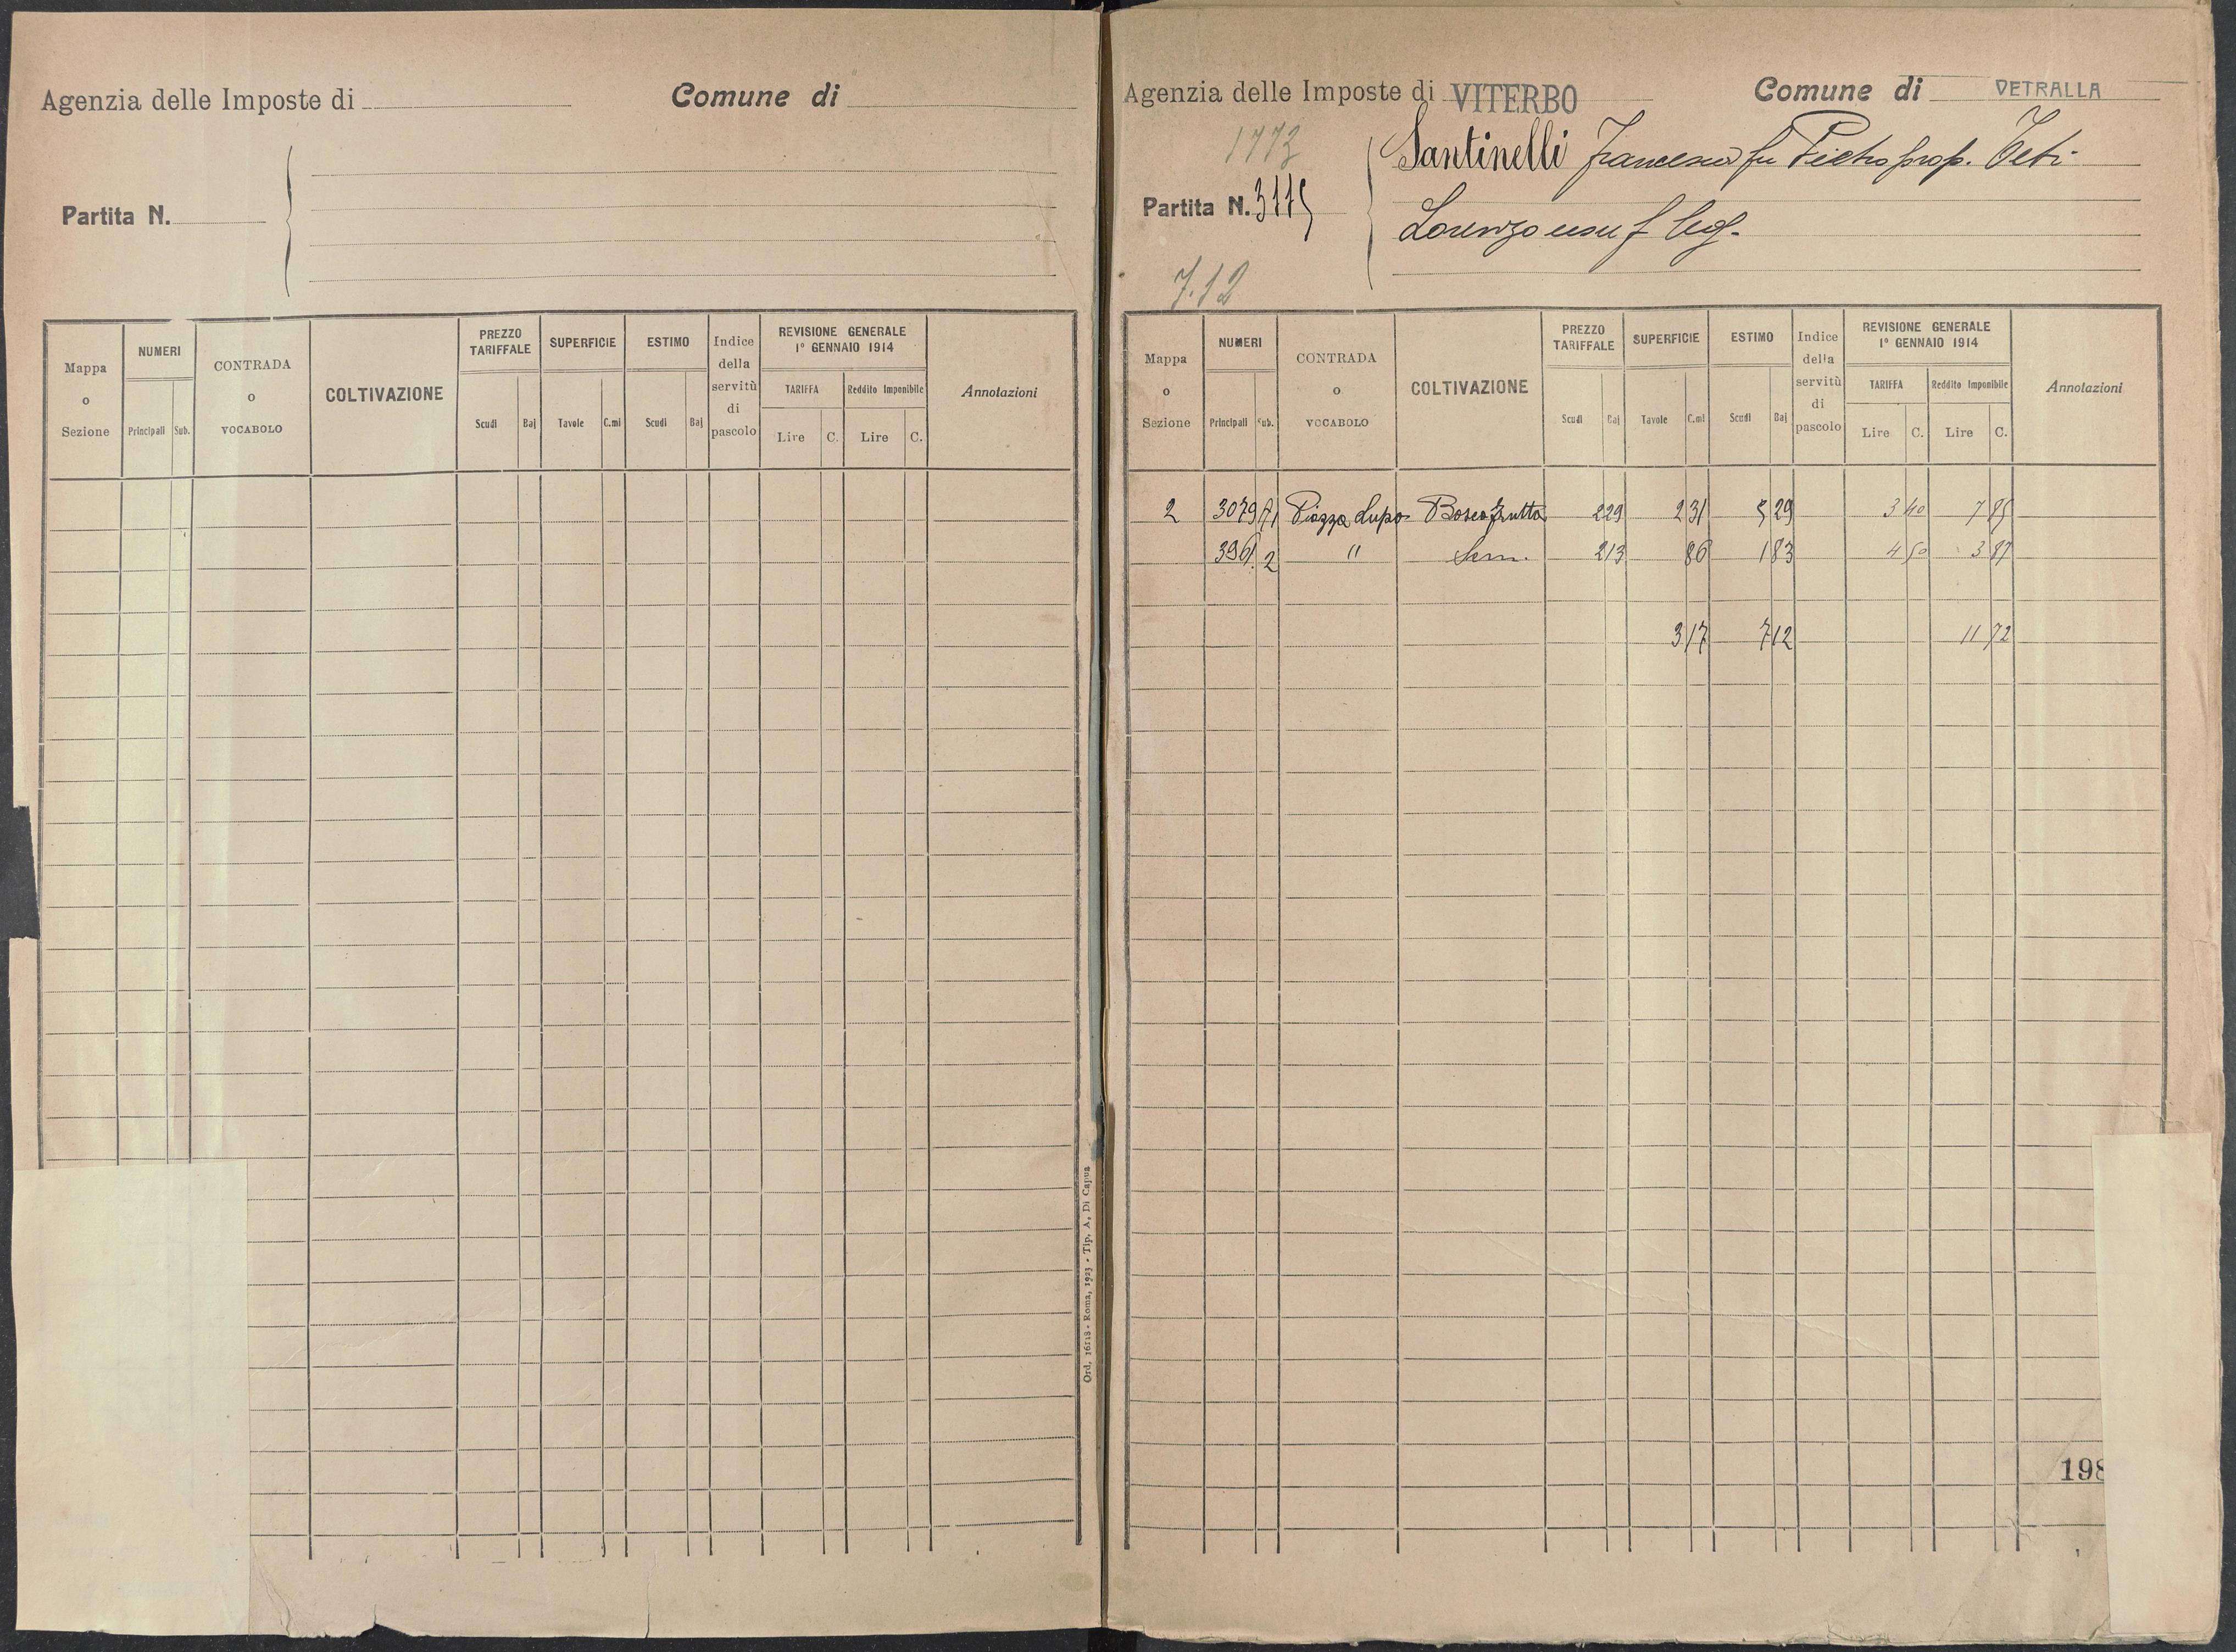 Agenzia delle Imposte di
Comune di
Partita N.
Mappa o Sezione
NUMERI
Principali Sub.
CONTRADA o VOCABOLO
COLTIVAZIONE
PREZZO TARIFFALE
Scudi Baj
SUPERFICIE
Tavole C.mi
ESTIMO
Scudi Baj
Indice della servitù di pascolo
REVISIONE GENERALE
1° GENNAIO 1914
TARIFFA Reddito Imponibile
Lire C. Lire C.
Annotazioni
Ord. 16118 - Roma, 1923 - Tip. A. Di Capua
Agenzia delle Imposte di VITERBO
Comune di VETRALLA
1773
Santinelli Francesco fu Pietro prop. Teti
Partita N. 3115
Lorenzo usuf leg.
7.12
Mappa o Sezione
NUMERI
Principali Sub.
CONTRADA o VOCABOLO
COLTIVAZIONE
PREZZO TARIFFALE
Scudi Baj
SUPERFICIE
Tavole C.mi
ESTIMO
Scudi Baj
Indice della servitù di pascolo
REVISIONE GENERALE
1° GENNAIO 1914
TARIFFA Reddito Imponibile
Lire C. Lire C.
Annotazioni
2 3079 Piazza Lupo Bosco frutto 2 29 2 31 5 29 3 40 7 85
396 2 " Sem. 2 13 86 1 83 4 50 3 87
3 17 7 12 11 72
198